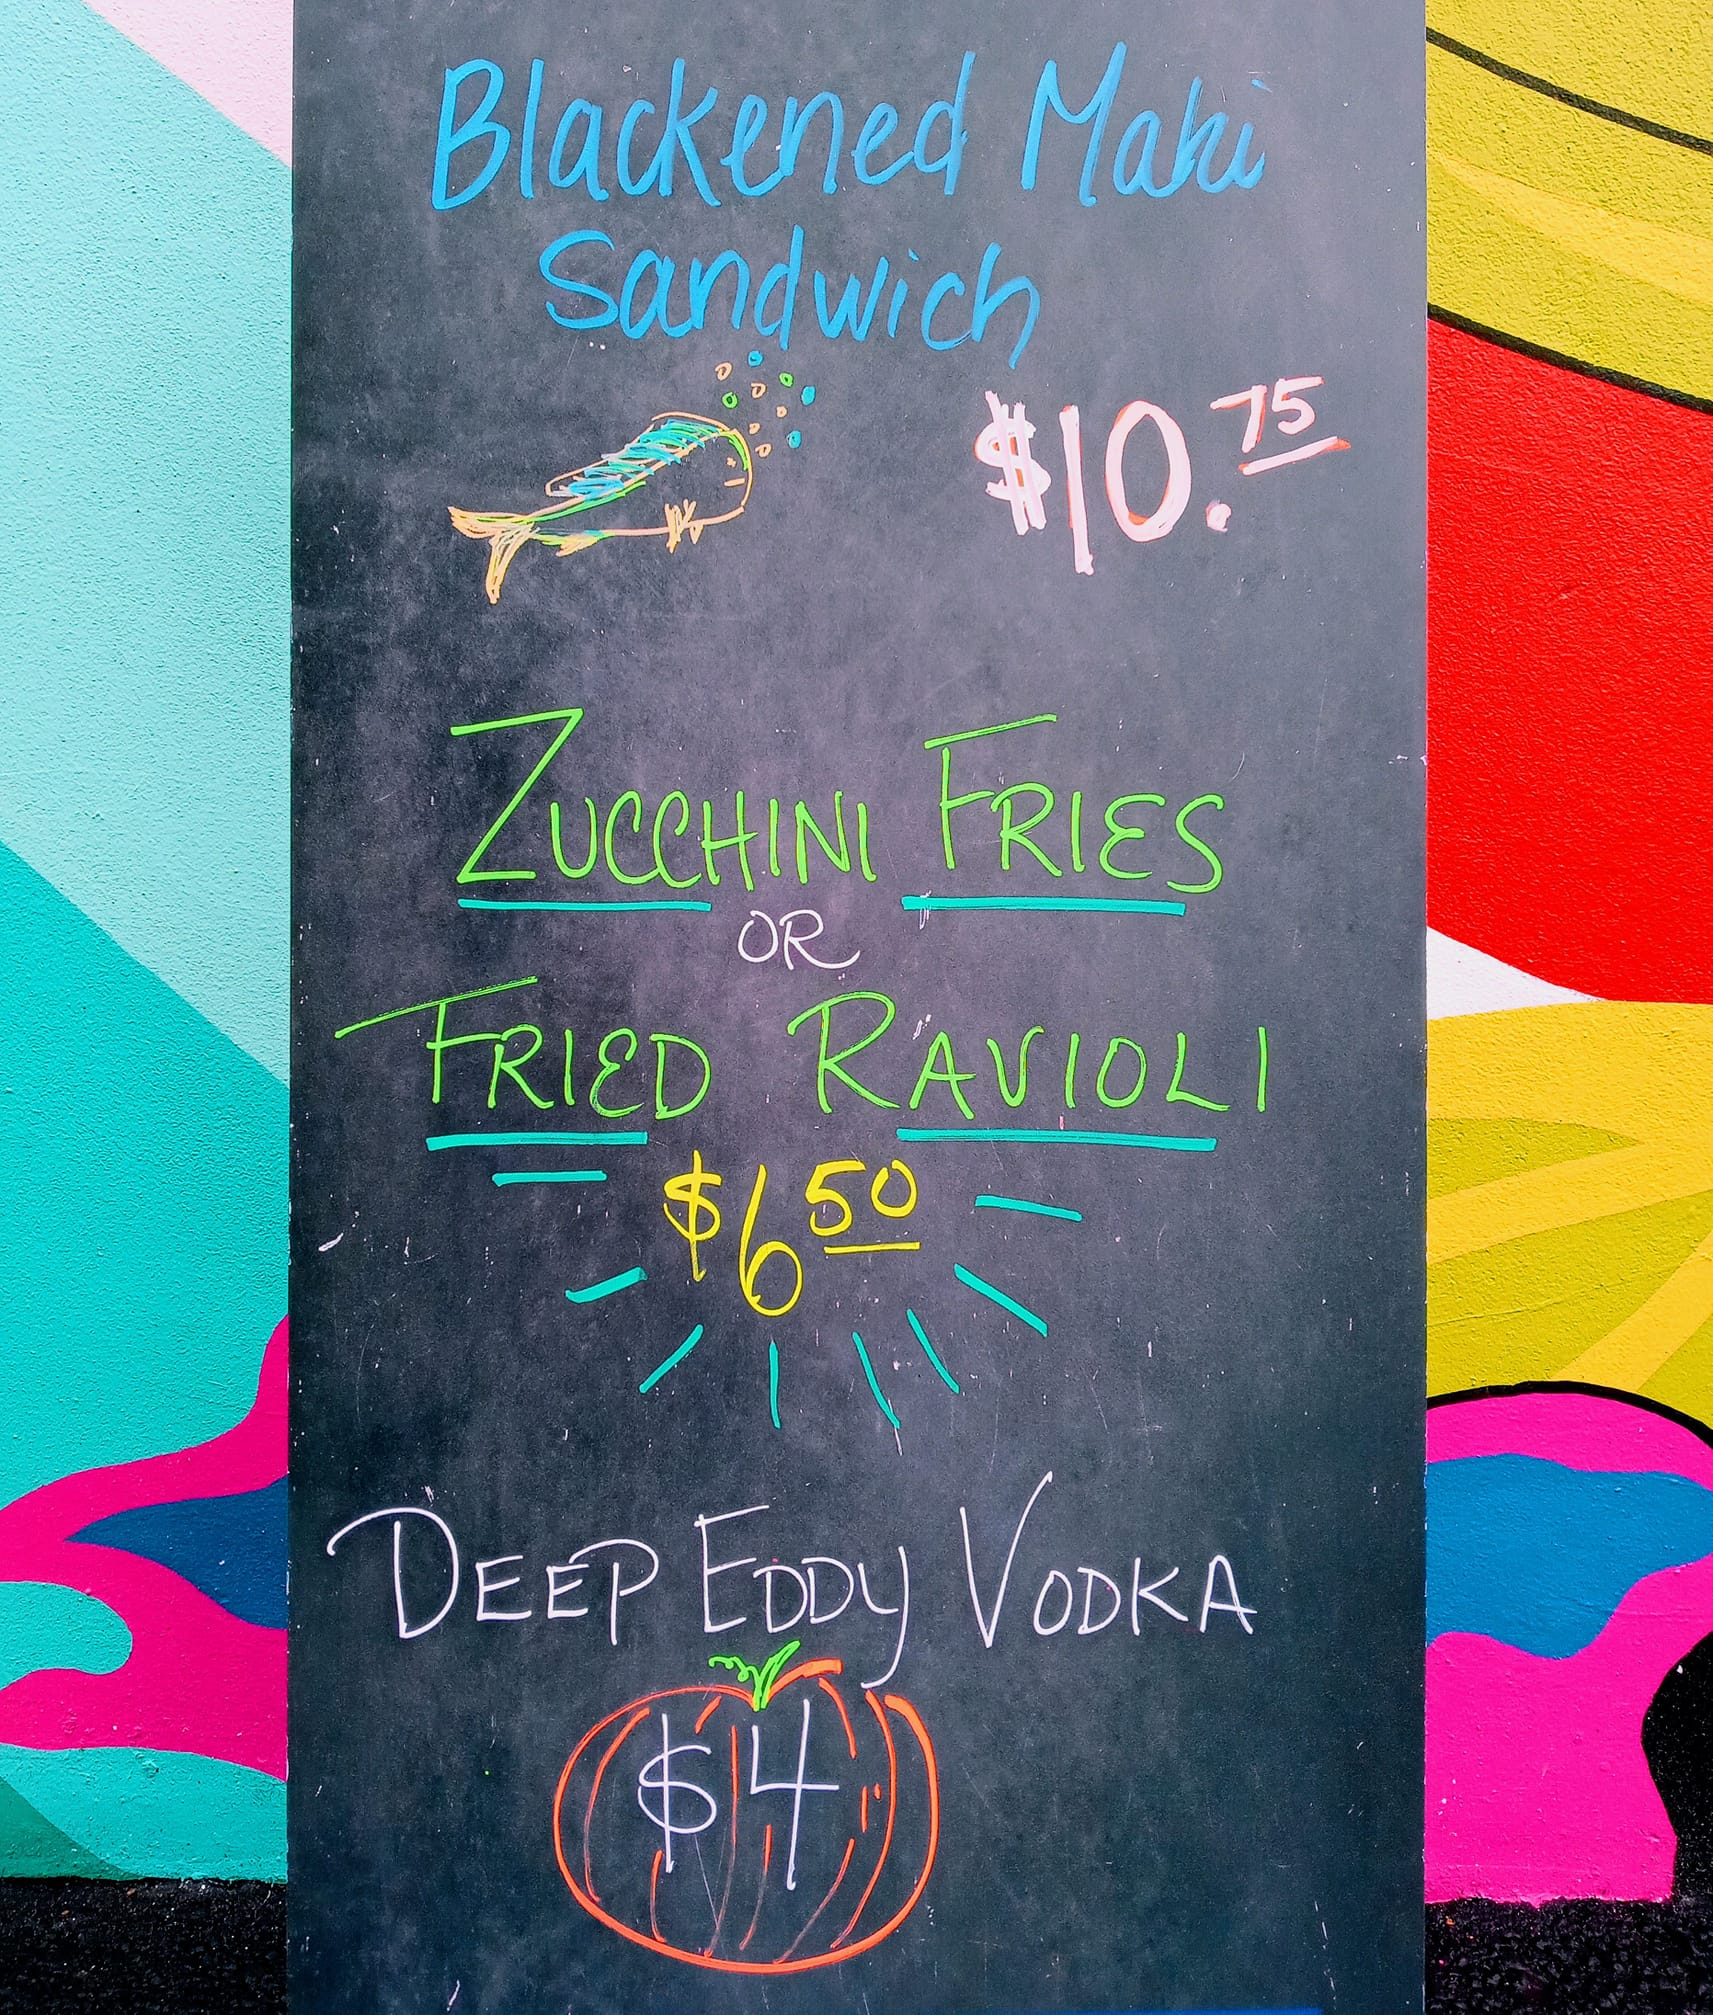 Blackened Mahi
Sandwich
$10.75
ZUCCHINI FRIES
OR
FRIED RAVIOLI
$6 50
DEEP EDDY VODKA
$4